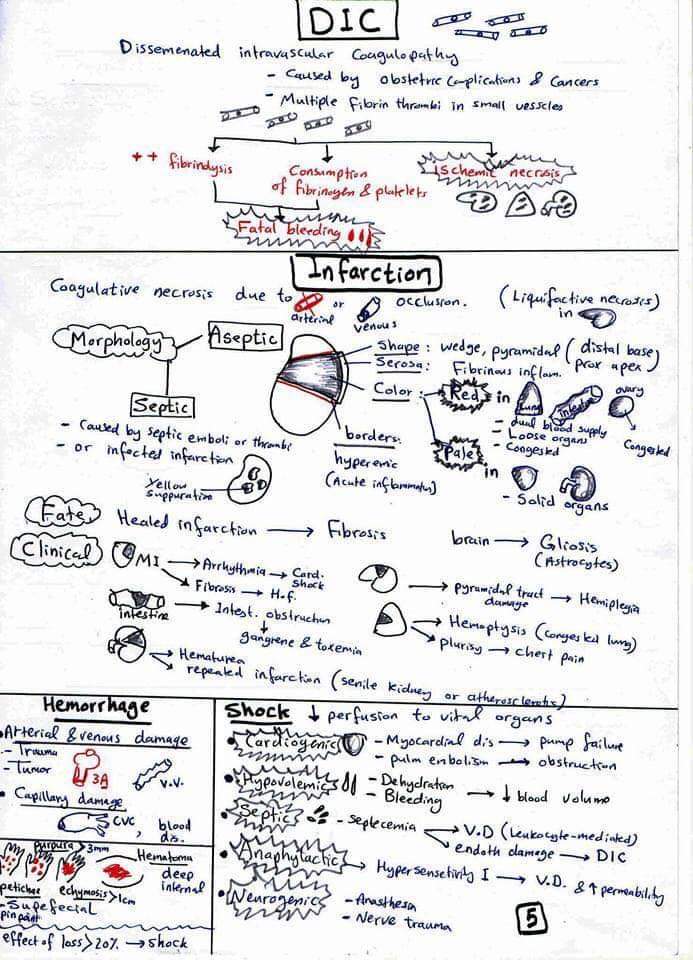 DIC
Dissemenated intravascular Coagulopathy
- Caused by obstetric Complications & Cancers
- Multiple fibrin thrombi in small vesscles
++ fibrinolysis
Consumption of fibrinogen & platelets
Ischemic necrosis
Fatal bleeding
Infarction
Coagulative necrosis due to arterial or venous occlusion. (Liquifactive necrosis) in
Morphology
Aseptic
Septic
- Caused by septic emboli or thrombi
- or infected infarction
Yellow suppuration
Shape : wedge, pyramidal ( distal base prox apex )
Serosa : Fibrinous inflam.
Color :
Red in
Lung
intestine
ovary
Congested
- dual blood supply
- Loose organs
- Congested
Pale in
- Solid organs
borders:
hyperemic
(Acute inflammatus)
Fate
Healed infarction → Fibrosis
brain → Gliosis
(Astrocytes)
Clinical
MI → Arrhythmia → Card. shock
→ Fibrosis → H.f.
intestine → Intest. obstruction
↓
gangrene & toxemia
→ Hematurea
→ repeated infarction (senile kidney or atherosclerotic)
→ pyramidal tract damage → Hemiplegia
→ Hemoptysis (congested lung)
→ plurisy → chest pain
Hemorrhage
• Arterial & venous damage
- Trauma
- Tumor
3A
V.V.
• Capillary damage
CVC, blood dis.
purpura >3mm
Hematoma
deep internal
petichae
echymosis >1cm
- Supefecial
pin point
effect of loss >20% → shock
Shock ↓ perfusion to vital organs
• Cardiogenic
- Myocardial dis → pump failure
- pulm embolism → obstruction
• Hypovolemic
- Dehydration
- Bleeding
→ ↓ blood volume
• Septic
- Seplecemia
→ V.D (Leukocyte-mediated)
→ endoth damage → DIC
• Anaphylactic
→ Hypersensetivity I → V.D. & ↑ permeability
• Neurogenic
- Anasthesa
- Nerve trauma
5